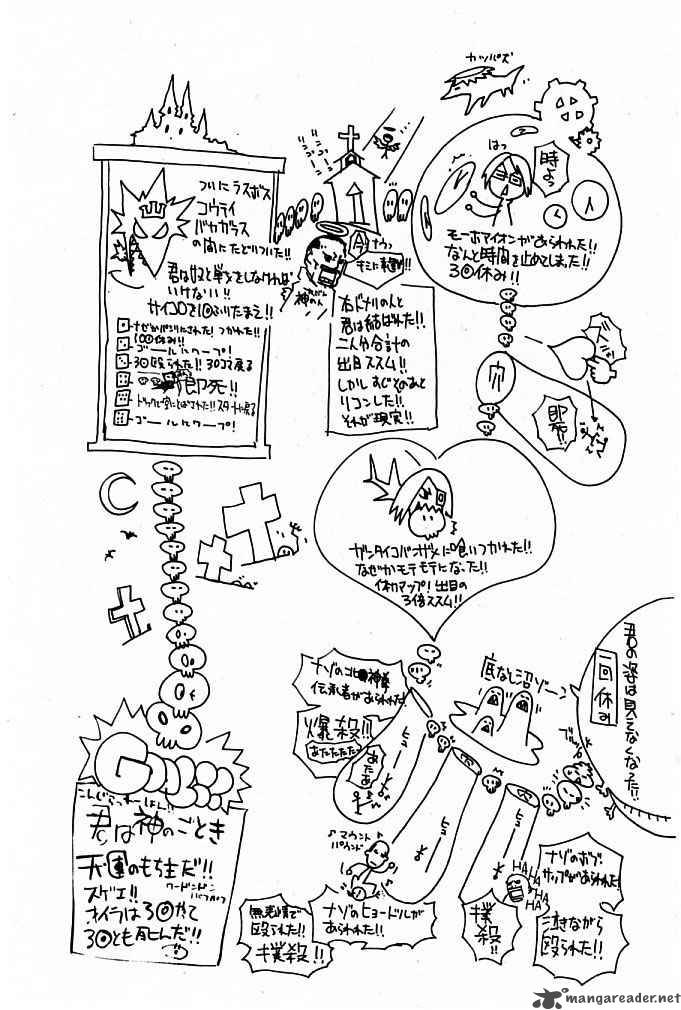 カッパズ
はっ
時よっ
モーホマイオンがあらわれた!!
なんと時間を止めてしまった!!
3回休み!!
ついにラスボス
コウライ
バヤカラス
の間にたどりついた!!
君は奴と勝負をしなければ
いけない!!
サイコロを1回ふりたまえ!!
つかれた!!
100回休み!!
ゴールにワープ!
3回殴られた!! 30コマ戻る
即死!!
スタートに戻る
ゴールにワープ!
神のん
右ドナリの人と
君は結ばれた!!
二人分合計の
出目ススム!!
しかしすぐそのあと
リコンした!!
それが現実!!
穴
即死!!
ガンタイコバンザメに喰いつかれた!!
なぜかモテモテになった!!
体力マップ!出目の
3倍ススム!!
君の姿は見えなくなった!!
一回休み
底なし沼ゾーン
ナゾの北
神拳
伝承者があらわれた!
爆殺!!
あたたたた
あたあ
ヒューー
ヒューー
ヒューー
マウント
パウンド
ナゾのヒョードルが
あらわれた!!
無表情で
殴られた!!
撲殺!!
撲殺!!
HA
HA
HA
HA
HA
ナゾのボブ・
サップがあらわれた!
泣きながら
殴られた!!
GOAL
こんぐらっちれーしょん!!
君は神のごとき
天運のもち主だ!!
スゲエ!!
オイラは3回やって
3回とも死んだ!!
mangareader.net